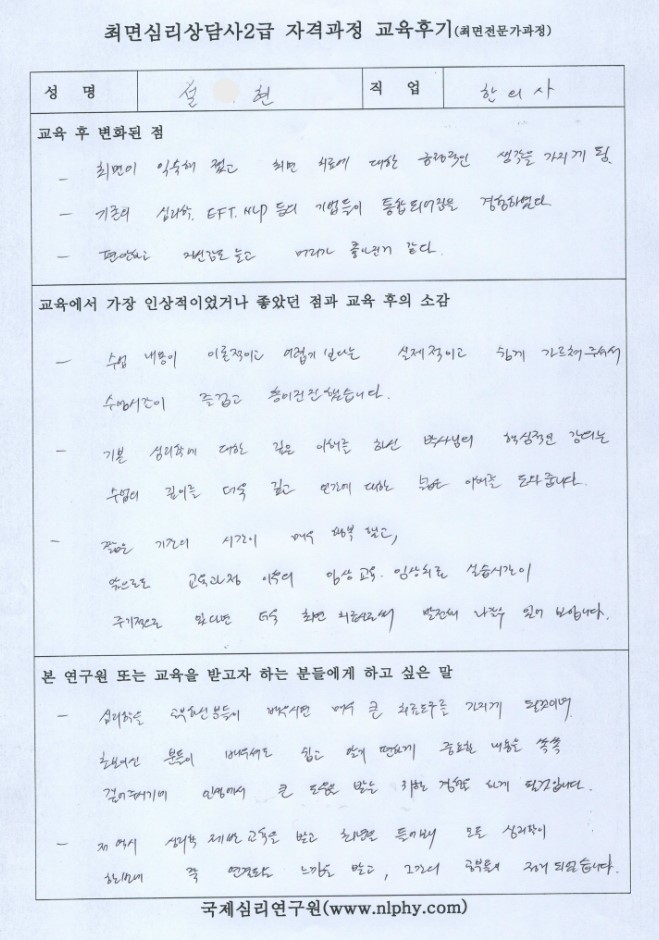 최면심리상담사2급 자격과정 교육후기(최면전문가과정)
성 명 설 현 직 업 한의사
교육 후 변화된 점
- 최면이 익숙해 졌고 최면 치료에 대한 긍정적인 생각을 가지게 됨.
- 기존의 심리학, EFT, NLP 등의 기법들이 통합되어짐을 경험하였다.
- 편안하고 자신감도 늘고 머리가 좋아진거 같다.
교육에서 가장 인상적이었거나 좋았던 점과 교육 후의 소감
- 수업 내용이 이론적이고 어렵기 보다는 실제적이고 쉽게 가르쳐주셔서
수업시간이 즐겁고 흥미진진했습니다.
- 기본 심리학에 대한 깊은 이해를 하신 박사님의 핵심적인 강의는
수업의 깊이를 더욱 깊고 인간에 대한 넓은 이해를 도와줍니다.
- 짧은 기간의 시간이 매우 행복했고,
앞으로도 교육과정 이후의 임상교육, 임상치료 실습시간이
주기적으로 있다면 더욱 최면 치료으로써 발전해 나갈수 있어 보입니다.
본 연구원 또는 교육을 받고자 하는 분들에게 하고 싶은 말
- 심리학을 공부하신분들이 배우시면 매우 큰 치료도구를 가지게 될것이며
초보이신 분들이 배우셔도 쉽고 알기 편하게 중요한 내용을 쏙쏙
집어주시기에 인생에서 큰 도움을 받는 귀한 경험을 하게 될것입니다.
- 저 역시 심리학 제반 교육을 받고 최면을 들어보니 모든 심리학이
한번에 쭉 연결되는 느낌을 받고, 그간의 공부들이 정리 되었습니다.
국제심리연구원(www.nlphy.com)